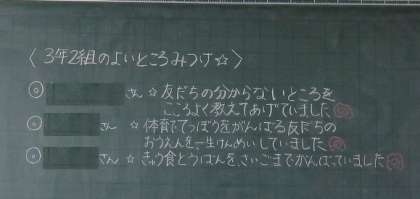 〈3年2組のよいところみつけ☆〉
◎ さん ☆友だちの分からないところを
こころよく教えてあげていました
◎ さん ☆体育でてつぼうをがんばる友だちの
おうえんを一生けんめいしていました
◎ さん ☆きゅう食とうばんを、さいごまでがんばっていました